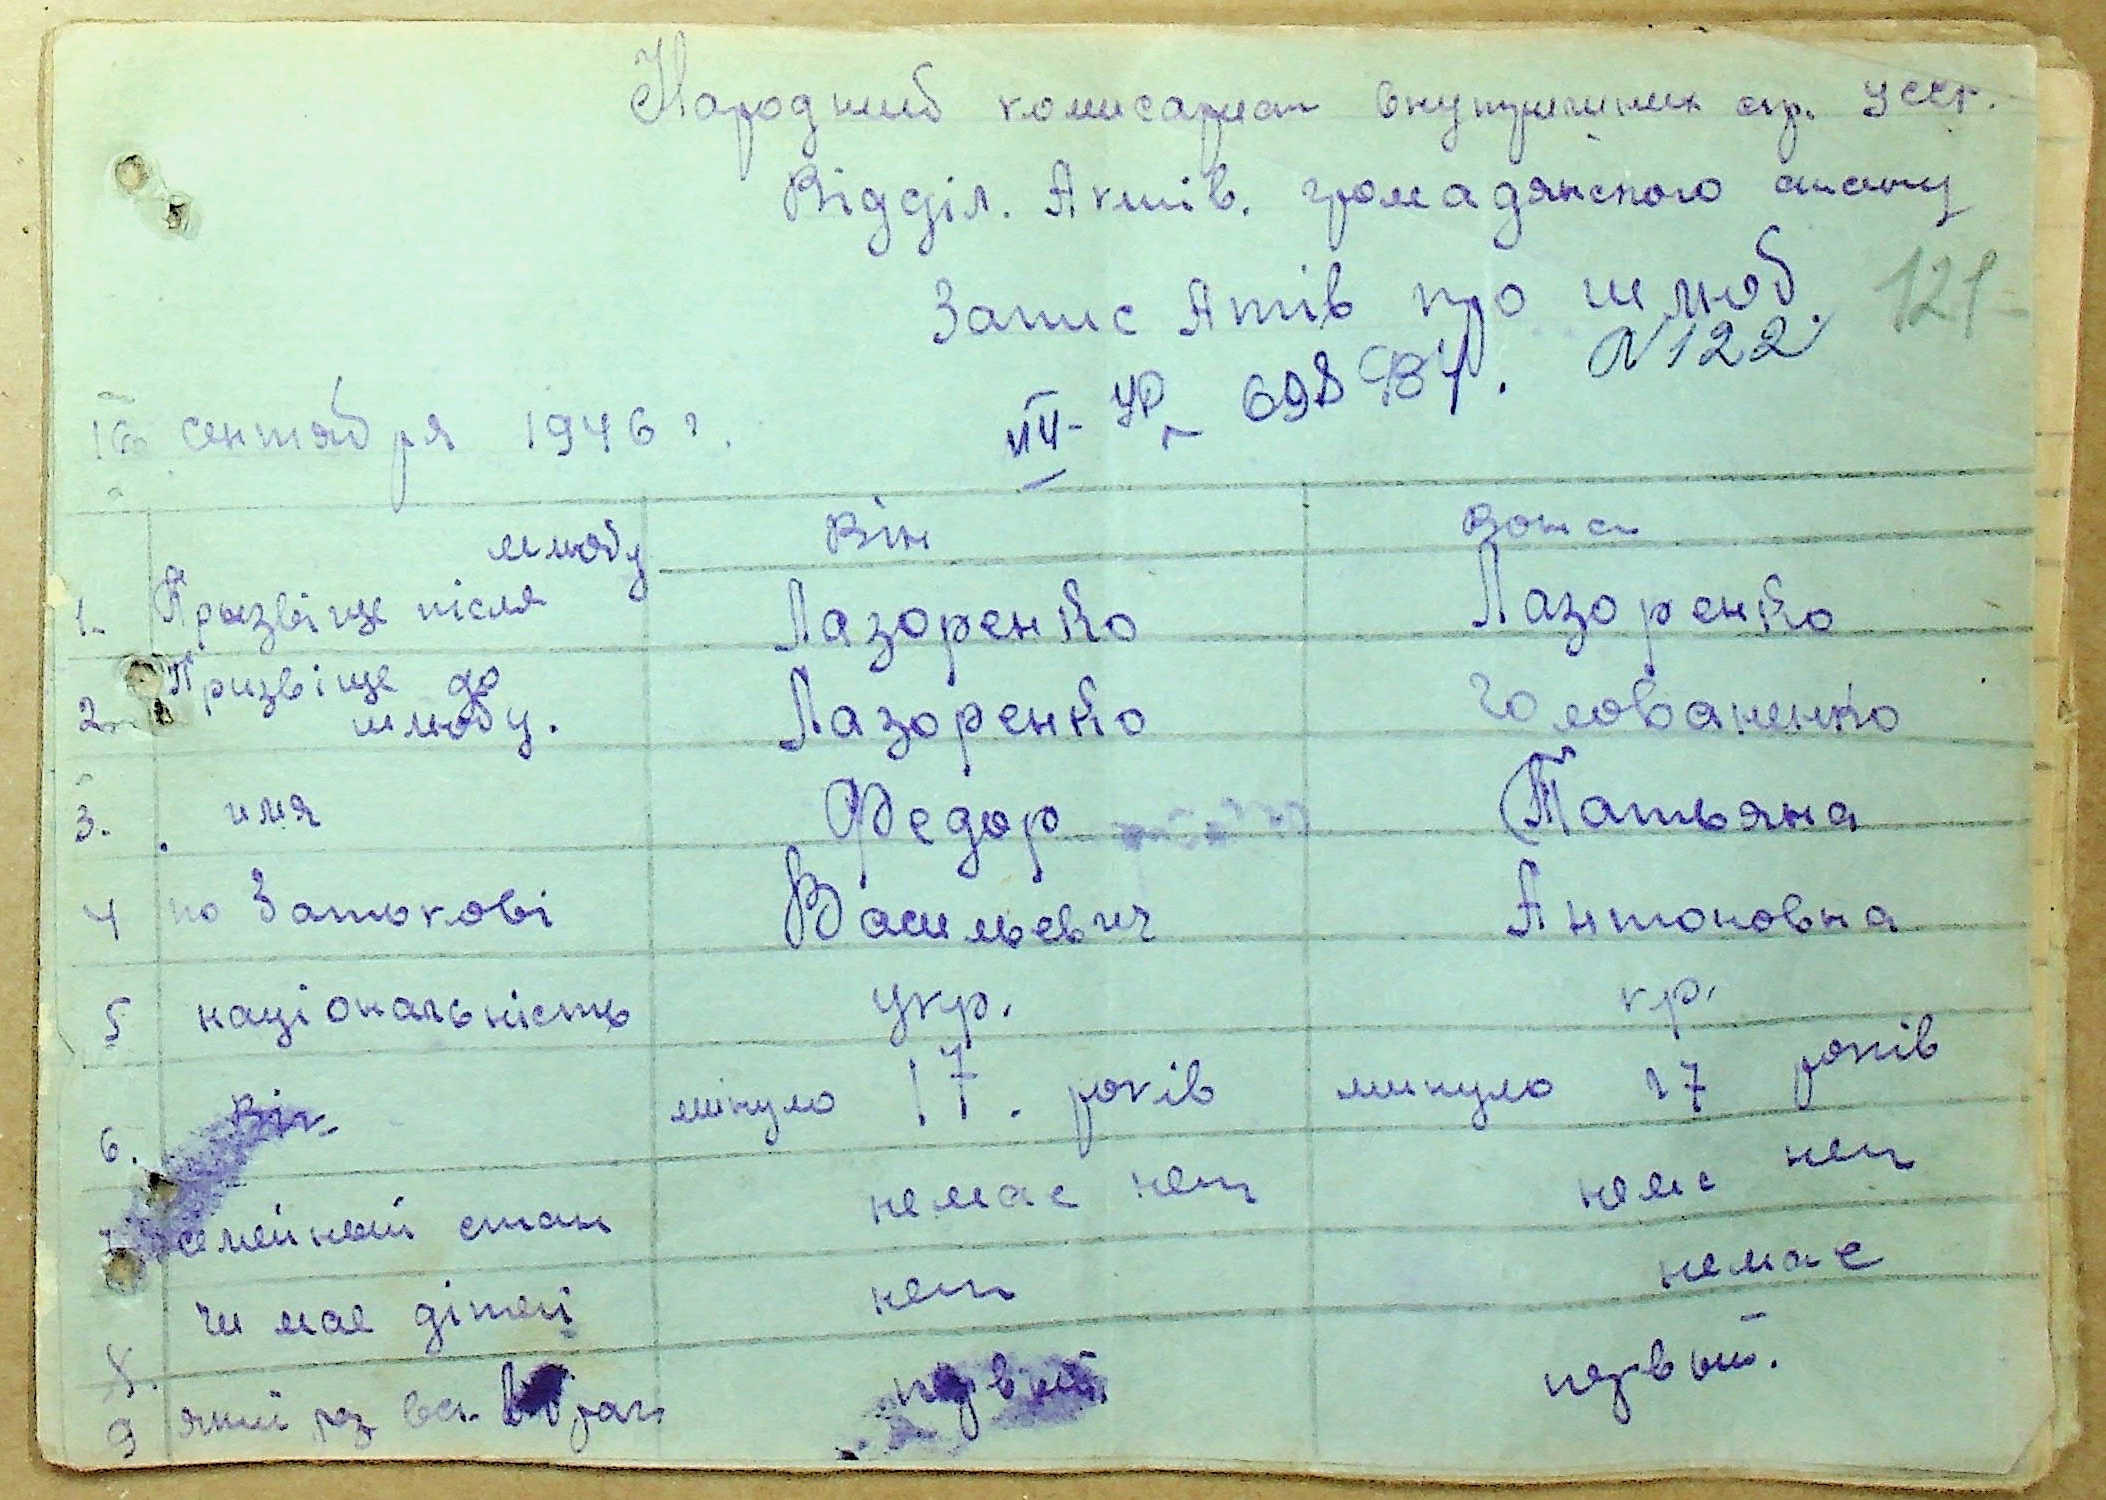 Народний комисариат внутришних спр. УССР.
Відділ. Актів. громадянского стану
Запис Атів про шлюб. 121
N 122
16 сентября 1946 г.
УР 698984.
шлюбу Він Вона
1. Призвіще після Лазоренко Лазоренко
2. Призвіще до Лазоренко Голованенко
шлюбу.
3. имя Федор Татьяна
4 по Батькові Васильевич Антоновна
5 національність укр. кр.
6. Вік минуло 17. років минуло 27 років
7 семейний стан немає нет неме нет
8. чи мае дітей нет немае
9 який раз первий. первый.